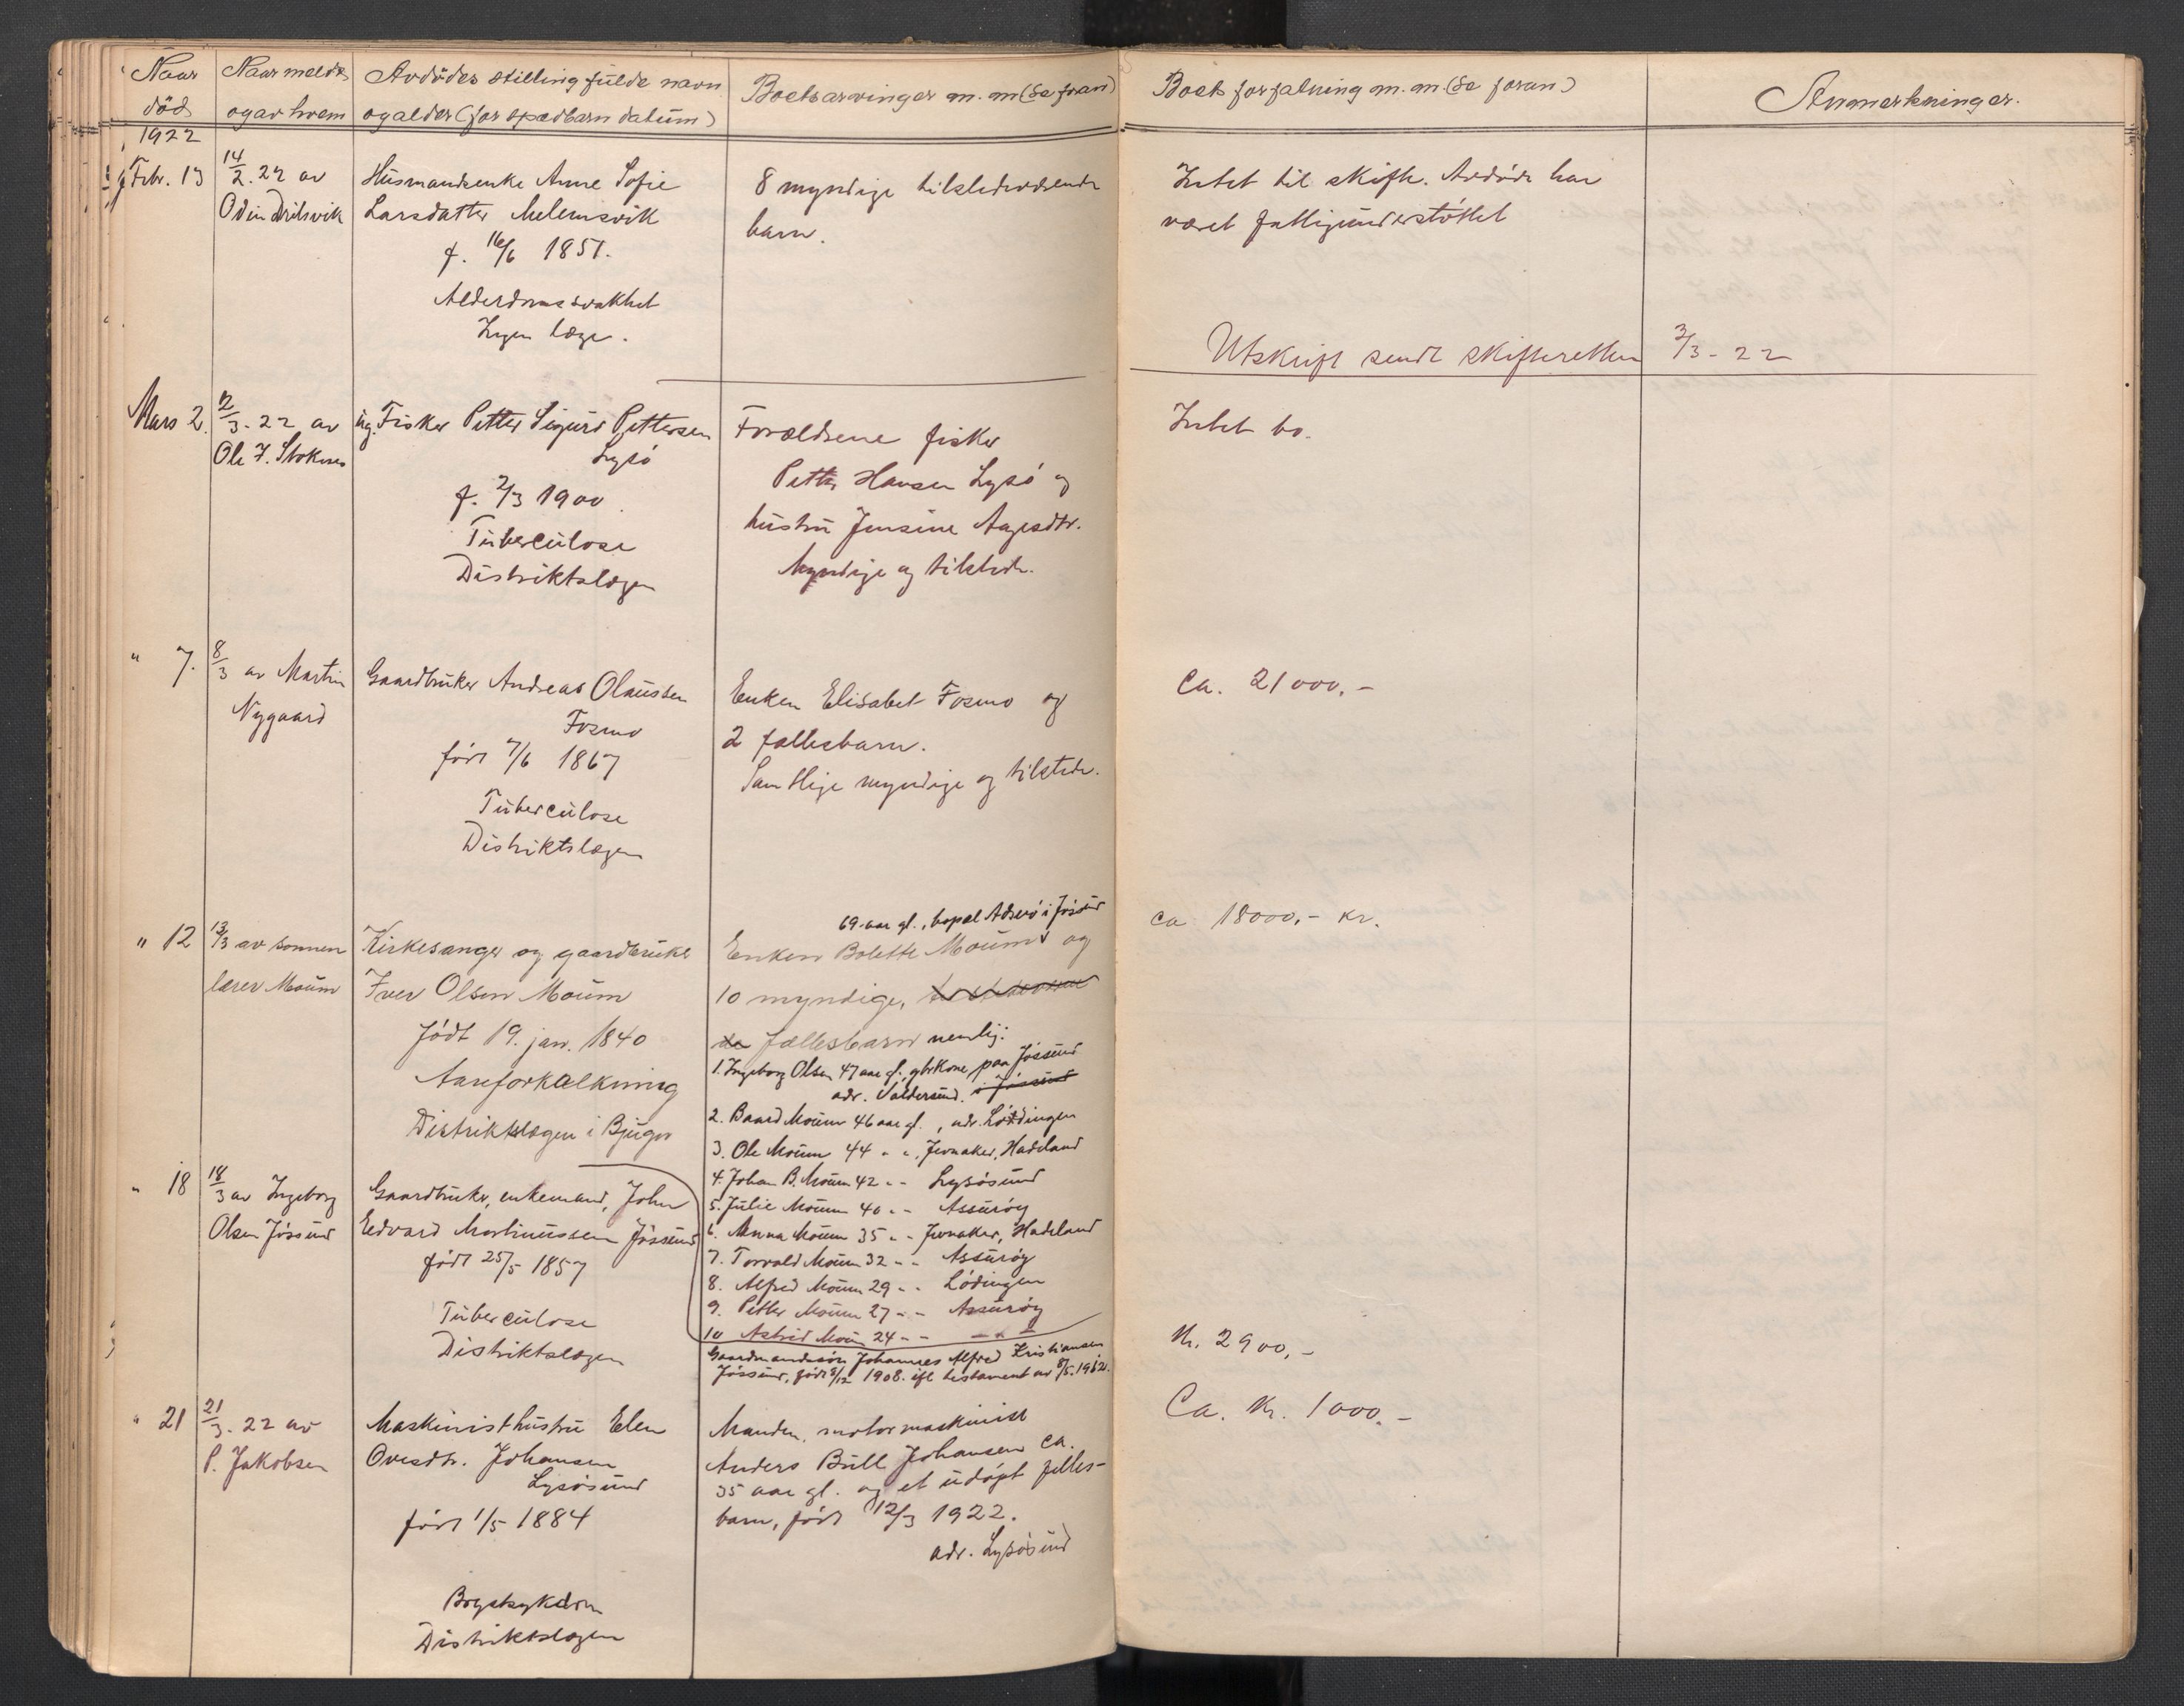 Naar
död
Naar meldt
og av hvem
Avdödes stilling fulde navn
og alder (for spædbarn datum)
Boets arvinger m.m (Se foran)
Boets forfatning m.m. (Se foran)
Anmerkninger.
1922
Febr. 13
14/2. 22 av
Odin Drilsvik
Husmandsenke Anne Sofie
Larsdatter Melemsvik
f. 16/6 1851.
Alderdomssvakhet
Ingen læge.
8 myndige tilstedeværende
barn.
Intet til skifte. Avdøde har
været fattigunderstøttet
Utskrift sendt skifteretten 3/3 - 22
Mars 2.
2/3 - 22 av
Ole J. Stoknes
ug. Fisker Petter Sigurd Pettersen
Lysö
f. 2/3 1900.
Tuberculose
Distriktslægen
Forældrene fisker
Petter Hansen Lysö og
hustru Jensine Aagesdtr.
Myndige og tilstede.
Intet bo.
" 7.
8/3 av Martin
Nygaard
Gaardbruker Andreas Olaussen
Fosmo
født 7/6 1867
Tuberculose
Distriktslægen
Enken Elisabet Fosmo og
2 fællesbarn.
Samtlige myndige og tilstede.
Ca. 21000.-
" 12
13/3 av sønnen
lærer Moum
Kirkesanger og gaardbruker
Iver Olsen Moum
Født 19. jan. 1840
Aareforkalkning
Distriktslægen i Bjugn
69 aar gl., bopæl i Jössund
Enken Bolette Moum og
10 myndige,
fællesbarn nemlig:
1. Ingeborg Olsen 47 aar gl. gbrkone paa Jössund
adr. Valdersund. i Jössund
2. Baard Moum 46 aar gl., adr. Lödingen
3. Ole Moum 44 " ", Jevnaker, Hadeland
4. Johan B. Moum 42 " " Lysösund
5. Julie Moum 40 " " Assuröy
6. Anna Moum 35 " " Jevnaker, Hadeland
7. Torvald Moum 32 " " Assuröy
8. Alfred Moum 29 " " Lödingen
9. Petter Moum 27 " " Assuröy
10 Astrid Moum 24 " " " " "
ca 18000,- kr.
" 18
18/3 av Ingeborg
Olsen Jössund
Gaardbruker, enkemand, John
Edvard Martinussen Jössund
født 25/5 1857
Tuberculose
Distriktslægen
Gaardmandssön Johannes Alfred Kristiansen
Jössund, født 8/12 1908. ifl. testament av 8/5. 1921.
Kr. 2900,-
" 21
21/3. 22 av
P. Jakobsen
Maskinisthustru Elen
Ovesdtr. Johansen
Lysösund
født 1/5 1884
Brystsykdom
Distriktslægen
Manden, motormaskinist
Anders Bull Johansen ca.
35 aar gl. og et udöpt fælles-
barn, født 12/3 1922.
adr. Lysösund
Ca. Kr. 1000.-